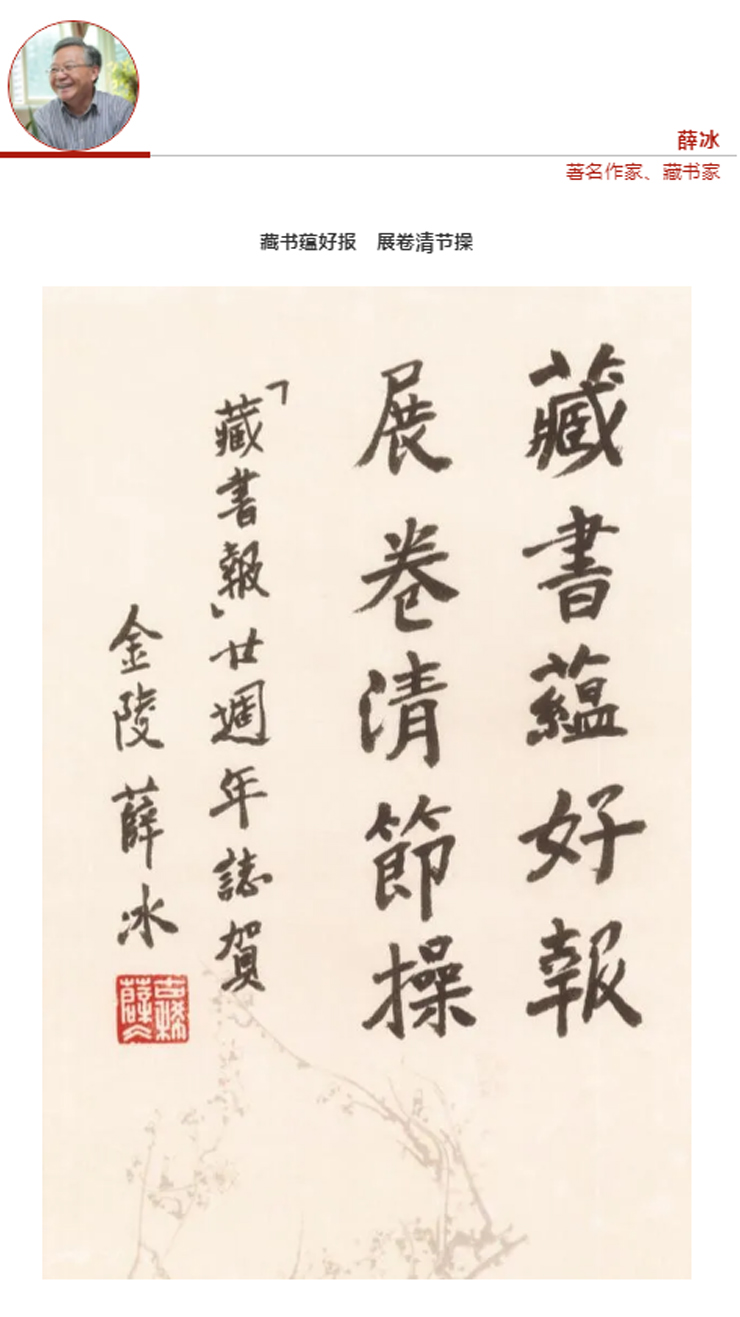 薛冰
著名作家、藏书家
藏书蕴好报　展卷清节操
藏書蘊好報
展卷清節操
「藏書報」廿週年誌賀
金陵薛冰